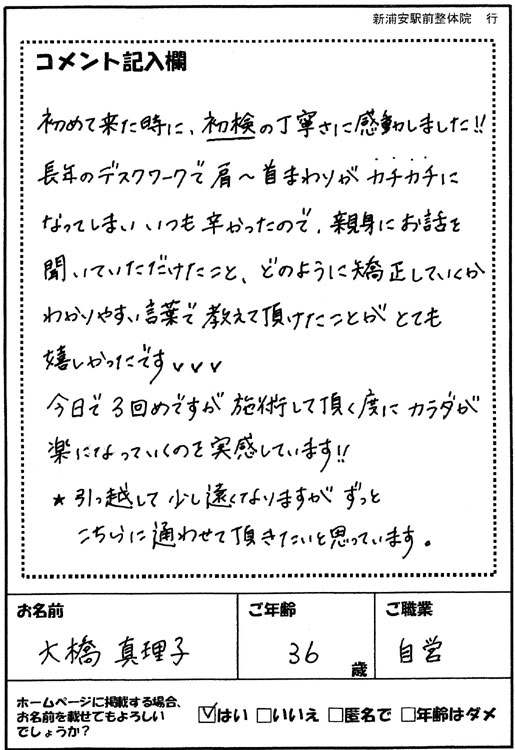 新浦安駅前整体院 行
コメント記入欄
初めて来た時に、初検の丁寧さに感動しました!!
長年のデスクワークで肩〜首まわりがカチカチに
なってしまいいつも辛かったので、親身にお話を
聞いていただけたこと、どのように矯正していくか
わかりやすい言葉で教えて頂けたことがとても
嬉しかったです✓✓✓
今日で3回めですが施術して頂く度にカラダが
楽になっていくのを実感しています!!
★引っ越して少し遠くなりますがずっと
こちらに通わせて頂きたいと思っています。
お名前 ご年齢 ご職業
大橋 真理子 36 歳 自営
ホームページに掲載する場合、
お名前を載せてもよろしい
でしょうか?
☑はい □いいえ □匿名で □年齢はダメ